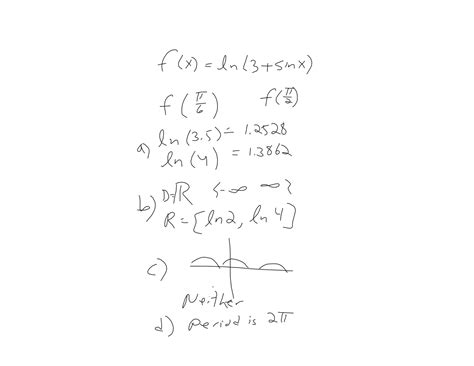 f(x) = ln(3+sinx)
f(π/6) f(π/2)
a) ln(3.5) = 1.2528
ln(4) = 1.3862
b) D=ℝ {-∞ ∞}
R = [ln2, ln4]
c)
Neither
d) Period is 2π